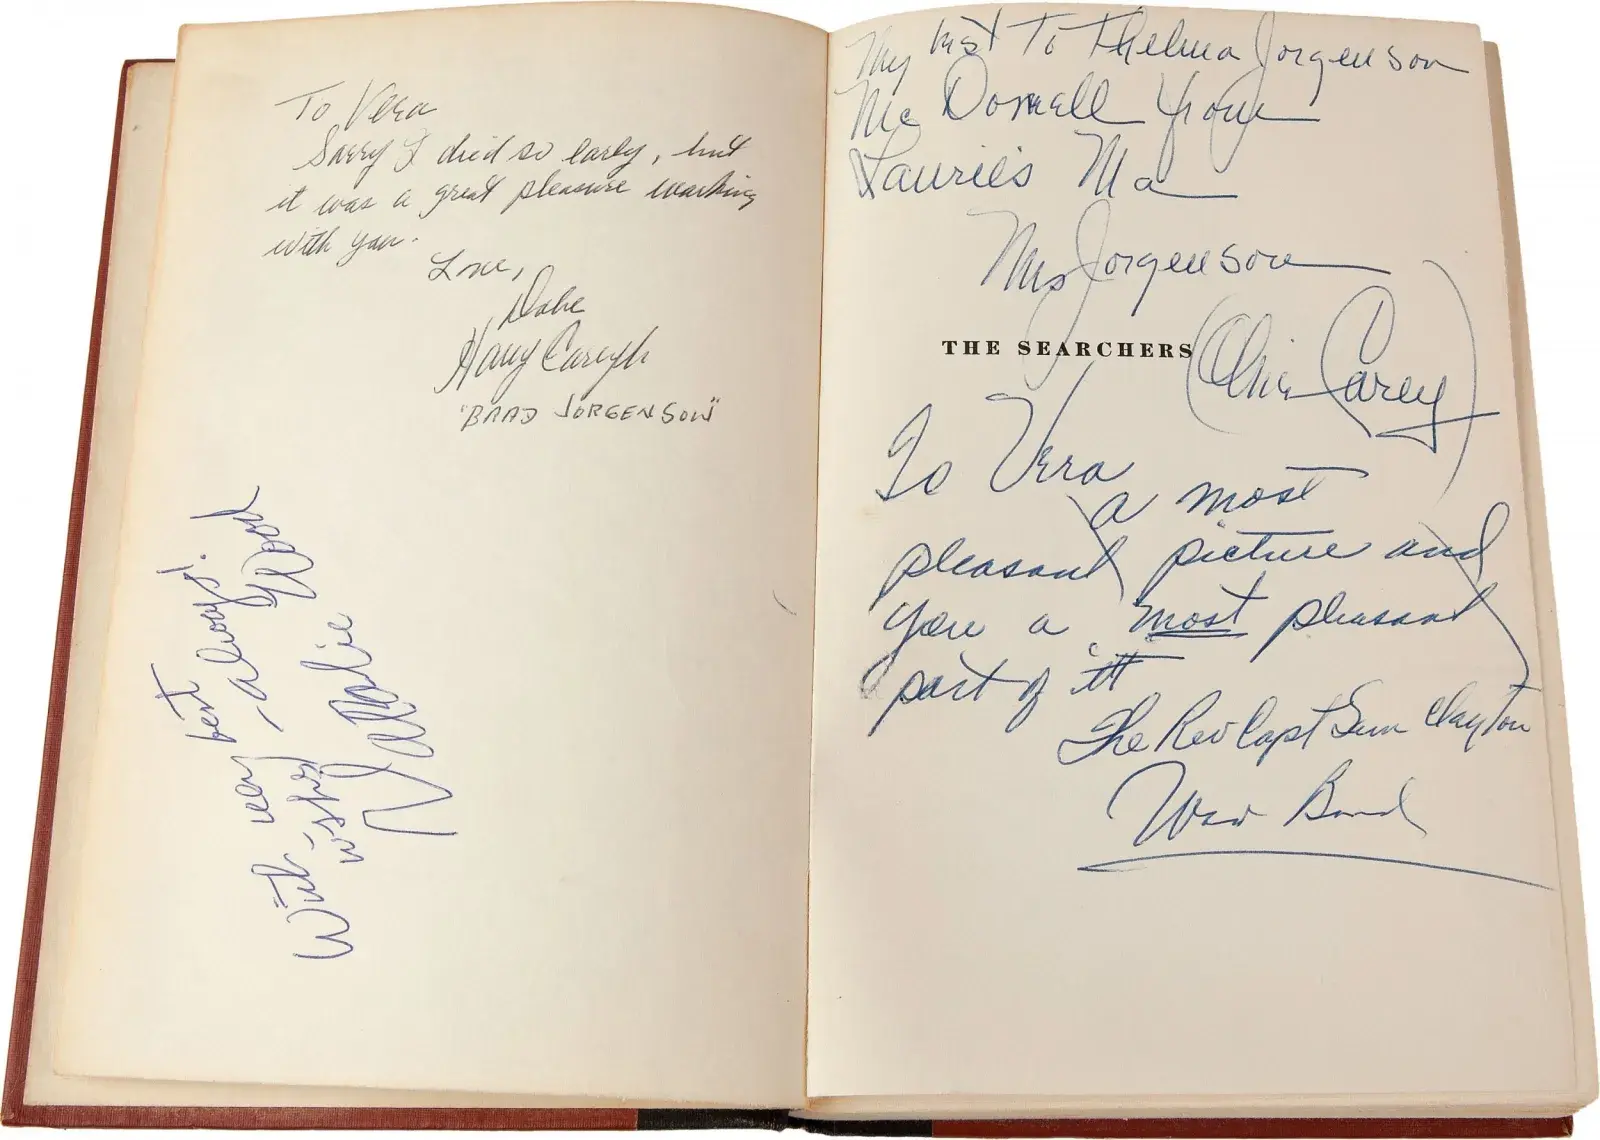 To Vera
Sorry I died so early, but
it was a great pleasure working
with you.
Love,
Dobe
Harry Carey Jr
"BRAD JORGENSON"
With very best
wishes - always!
Natalie Wood
My best To Thelma Jorgenson
Mc Donnell from
Laurie's Ma
Mrs Jorgenson
(Olive Carey)
THE SEARCHERS
To Vera
a most
pleasant picture and
you a most pleasant
part of it
The Rev Capt Sam Clayton
Ward Bond